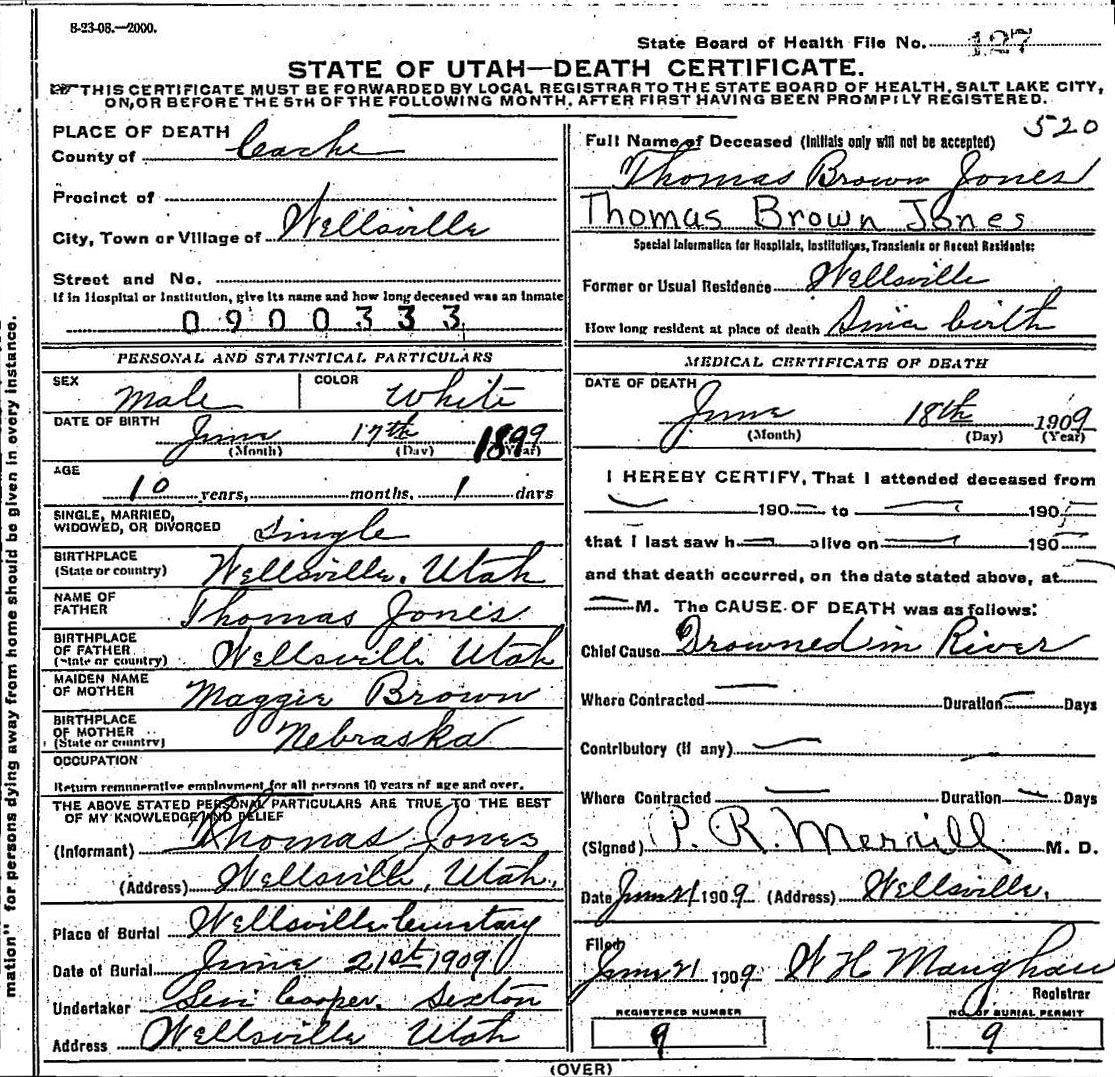 8-23-08.—2000.
State Board of Health File No. 127
STATE OF UTAH—DEATH CERTIFICATE.
THIS CERTIFICATE MUST BE FORWARDED BY LOCAL REGISTRAR TO THE STATE BOARD OF HEALTH, SALT LAKE CITY,
ON, OR BEFORE THE 5TH OF THE FOLLOWING MONTH, AFTER FIRST HAVING BEEN PROMPTLY REGISTERED.
PLACE OF DEATH
County of Cache
Precinct of
City, Town or Village of Wellsville
Street and No.
If in Hospital or Institution, give its name and how long deceased was an inmate
0900333
PERSONAL AND STATISTICAL PARTICULARS
SEX Male COLOR White
DATE OF BIRTH June 17th 1899
(Month) (Day) (Year)
AGE
10 years, months, 1 days
SINGLE, MARRIED,
WIDOWED, OR DIVORCED Single
BIRTHPLACE
(State or country) Wellsville, Utah
NAME OF
FATHER Thomas Jones
BIRTHPLACE
OF FATHER
(State or country) Wellsville Utah
MAIDEN NAME
OF MOTHER Maggie Brown
BIRTHPLACE
OF MOTHER
(State or country) Nebraska
OCCUPATION
Return remunerative employment for all persons 10 years of age and over.
THE ABOVE STATED PERSONAL PARTICULARS ARE TRUE TO THE BEST
OF MY KNOWLEDGE AND BELIEF
(Informant) Thomas Jones
(Address) Wellsville, Utah,
Place of Burial Wellsville Cemetary
Date of Burial June 21st 1909
Undertaker Levi Cooper, Sexton
Address Wellsville Utah
520
Full Name of Deceased (Initials only will not be accepted)
Thomas Brown Jones
Thomas Brown Jones
Special Information for Hospitals, Institutions, Transients or Recent Residents:
Former or Usual Residence Wellsville
How long resident at place of death Since birth
MEDICAL CERTIFICATE OF DEATH
DATE OF DEATH
June 18th 1909
(Month) (Day) (Year)
I HEREBY CERTIFY, That I attended deceased from
190 to 190
that I last saw h alive on 190
and that death occurred, on the date stated above, at
M. The CAUSE OF DEATH was as follows:
Chief Cause Drowned in River
Where Contracted Duration Days
Contributory (if any)
Where Contracted Duration Days
(Signed) P. R. Merrill M. D.
Date June 21 1909 (Address) Wellsville,
Filed
June 21 1909 W H Maughan
Registrar
REGISTERED NUMBER
9
NO. OF BURIAL PERMIT
9
(OVER)
mation" for persons dying away from home should be given in every instance.